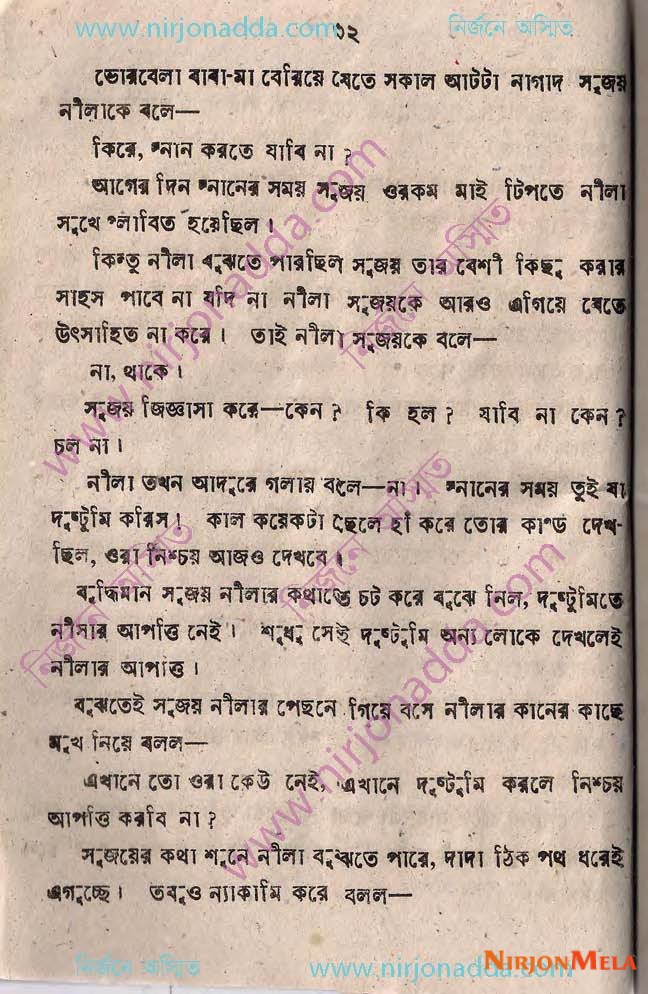 www.nirjonadda.com ১২ নির্জনে অস্মিত
ভোরবেলা বাবা-মা বেরিয়ে যেতে সকাল আটটা নাগাদ সুজয়
নীলাকে বলে—
কিরে, স্নান করতে যাবি না ?
আগের দিন স্নানের সময় সুজয় ওরকম মাই টিপতে নীলা
সুখে প্লাবিত হয়েছিল ।
কিন্তু নীলা বুঝতে পারছিল সুজয় তার বেশী কিছু করার
সাহস পাবে না যদি না নীলা সুজয়কে আরও এগিয়ে যেতে
উৎসাহিত না করে । তাই নীলা সুজয়কে বলে—
না, থাকে ।
সুজয় জিজ্ঞাসা করে—কেন ? কি হল ? যাবি না কেন ?
চল না ।
নীলা তখন আদুরে গলায় বলে—না । স্নানের সময় তুই যা
দুষ্টুমি করিস । কাল কয়েকটা ছেলে হাঁ করে তোর কান্ড দেখ-
ছিল, ওরা নিশ্চয় আজও দেখবে ।
বুদ্ধিমান সুজয় নীলার কথাতে চট করে বুঝে নিল, দুষ্টুমিতে
নীলার আপত্তি নেই । শুধু সেই দুষ্টুমি অন্য লোকে দেখলেই
নীলার আপত্তি ।
বুঝতেই সুজয় নীলার পেছনে গিয়ে বসে নীলার কানের কাছে
মুখ নিয়ে বলল—
এখানে তো ওরা কেউ নেই, এখানে দুষ্টুমি করলে নিশ্চয়
আপত্তি করবি না ?
সুজয়ের কথা শুনে নীলা বুঝতে পারে, দাদা ঠিক পথ ধরেই
এগুচ্ছে । তবুও ন্যাকামি করে বলল—
www.nirjonadda.com
নির্জনে অস্মিত
নির্জনে অস্মিত
নির্জনে অস্মিত
www.nirjonadda.com
নির্জনে অস্মিত www.nirjonadda.com
NIRJONMELA